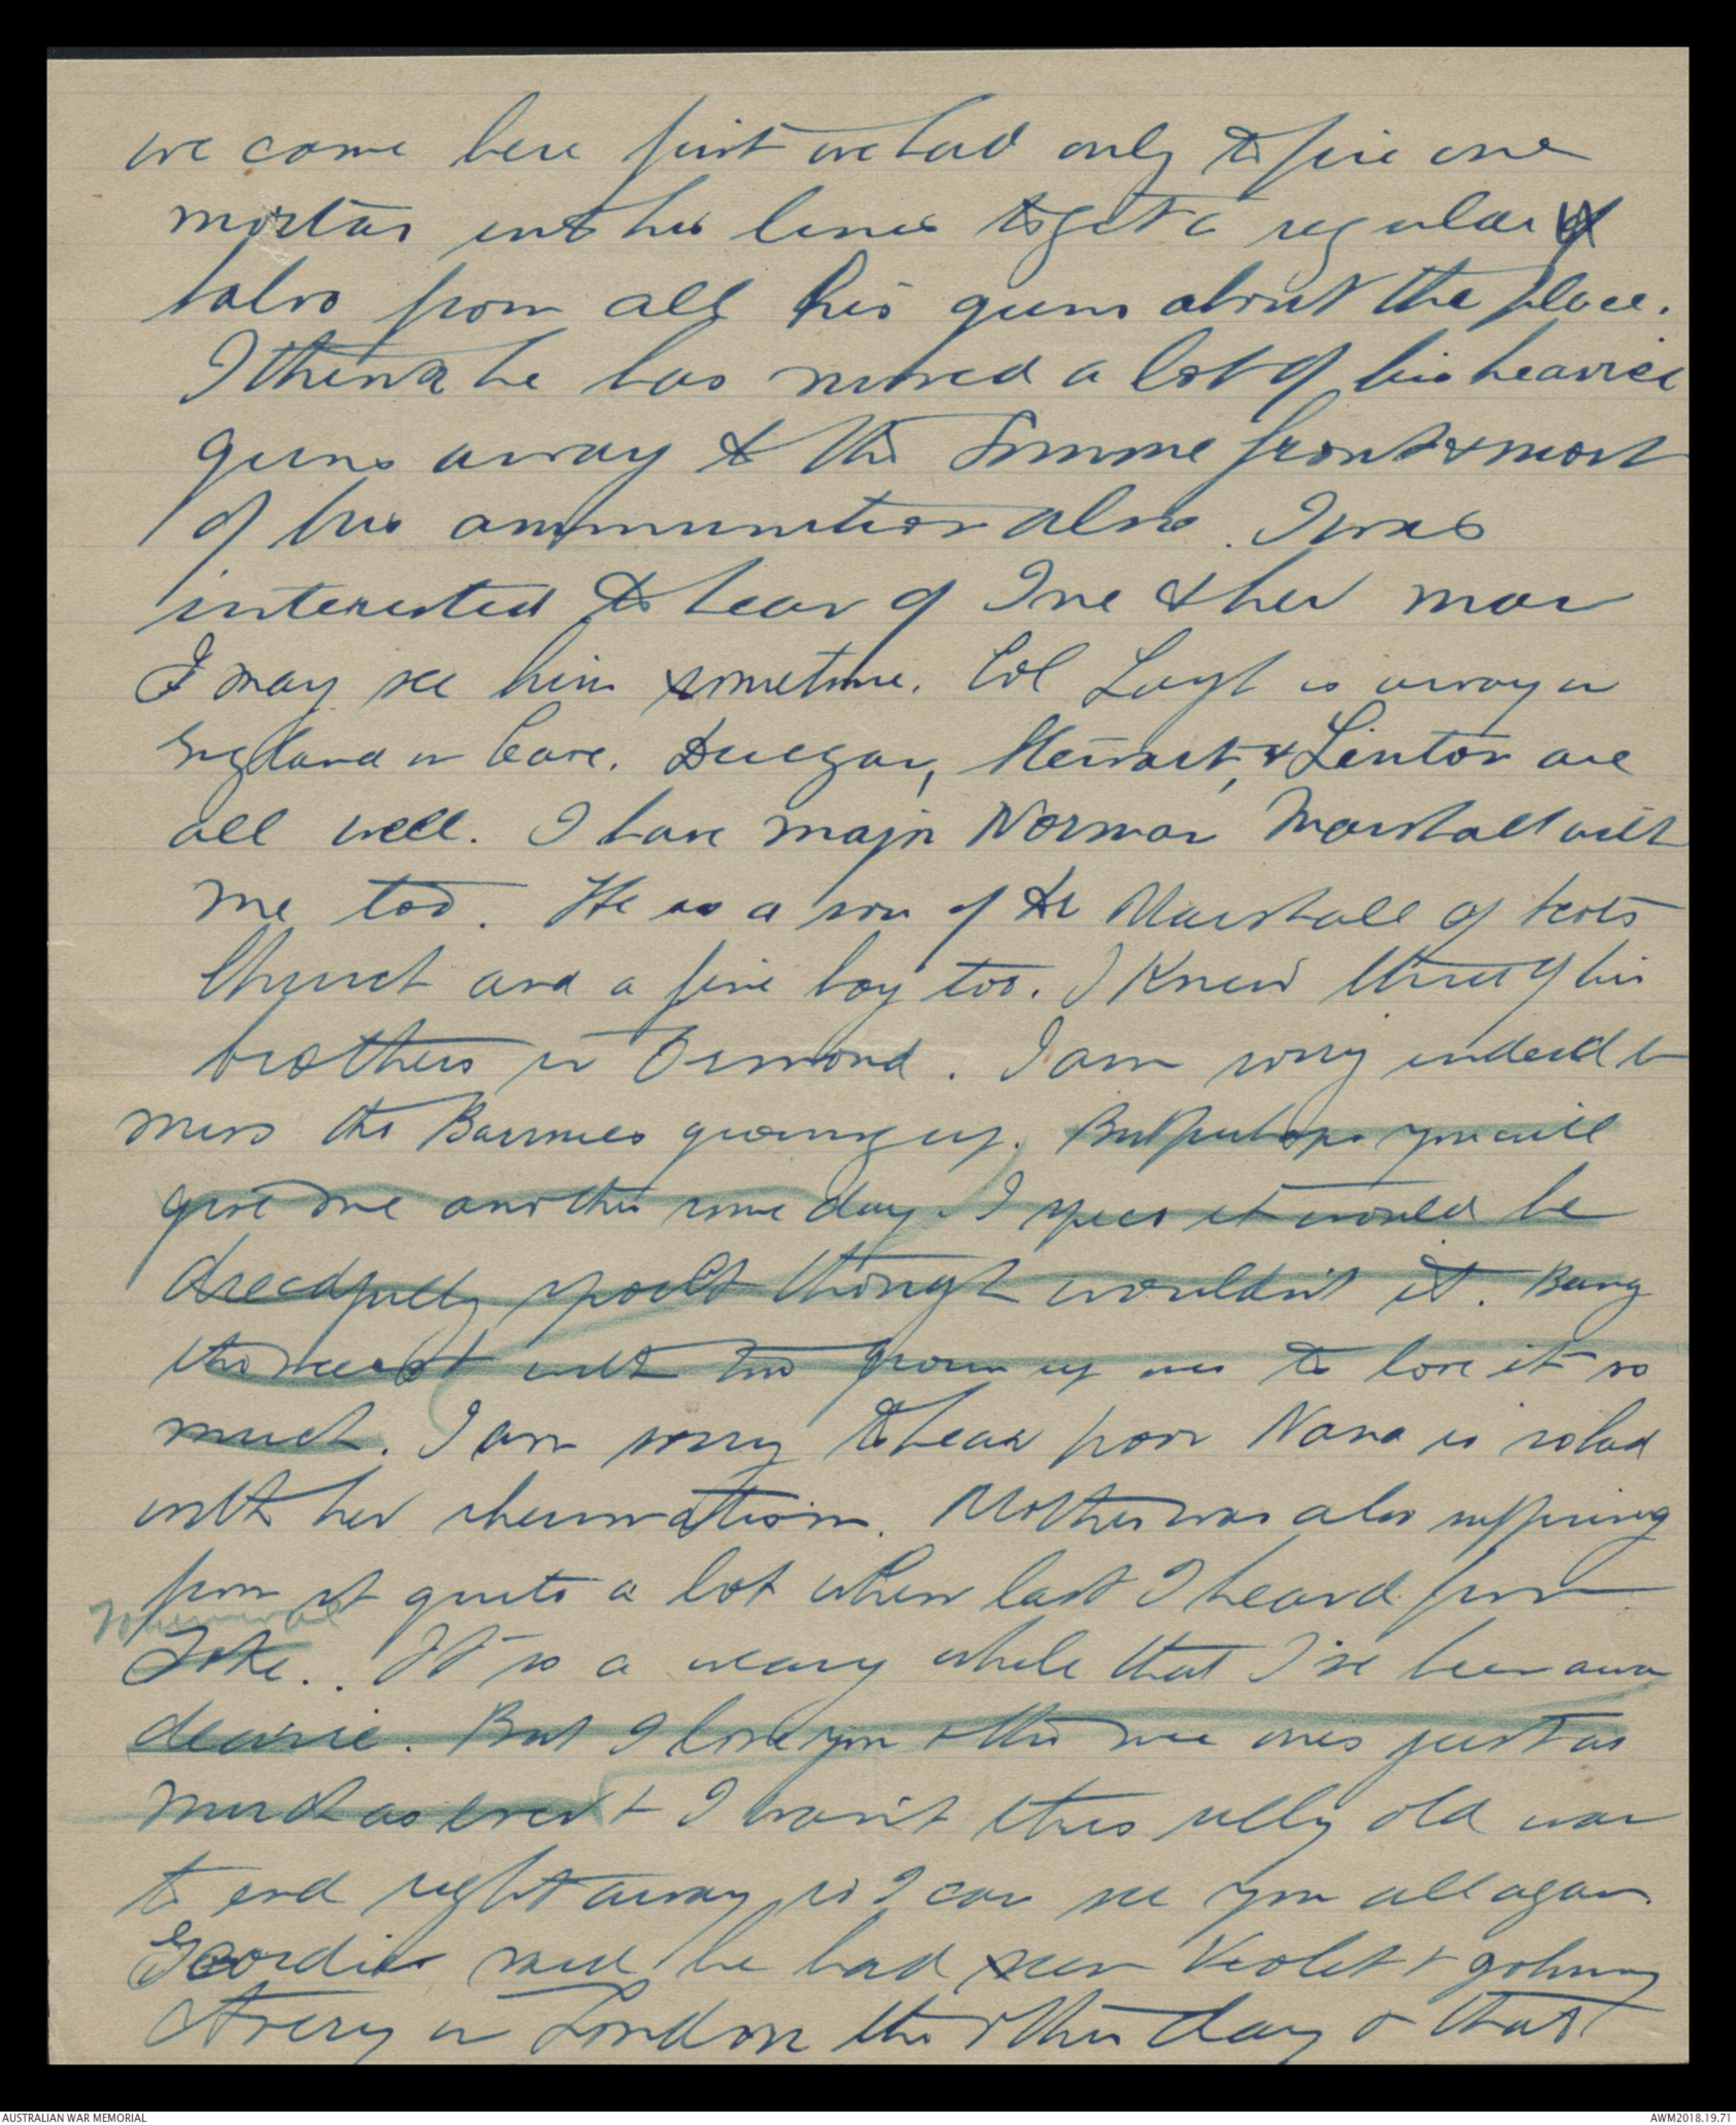 we came here first we had only to fire one
mortar into his lines to get a regular
salvo from all his guns about the place.
I think he has moved a lot of his heavier
guns away to the Somme front & most
of his ammunition also. I was
interested to hear of Ine & her man
I may see him sometime. Col Layh is away in
England on leave. Duigan, Stewart, & Linton are
all well. I have Major Norman Marshall with
me too. He is a son of Dr Marshall of Scots
Church and a fine boy too. I knew three of his
brothers in Ormond. I am sorry indeed to
miss the Bairnies growing up. But perhaps you will
give me another some day. I spees it would be
dreadfully spoilt though wouldn't it. Being
the next with two grown up ones to love it so
much. I am sorry to hear poor Nana is so bad
with her rheumatism. Mother was also suffering
from it quite a lot when last I heard from
. It is a weary while that I've been away
dearie. But I love you & the wee ones just as
much as ever & I want this silly old war
to end right away so I can see you all again.
Geordie said he had seen Violet & Johnny
Avery in London the other day & that
AUSTRALIAN WAR MEMORIAL
AWM2018.19.71